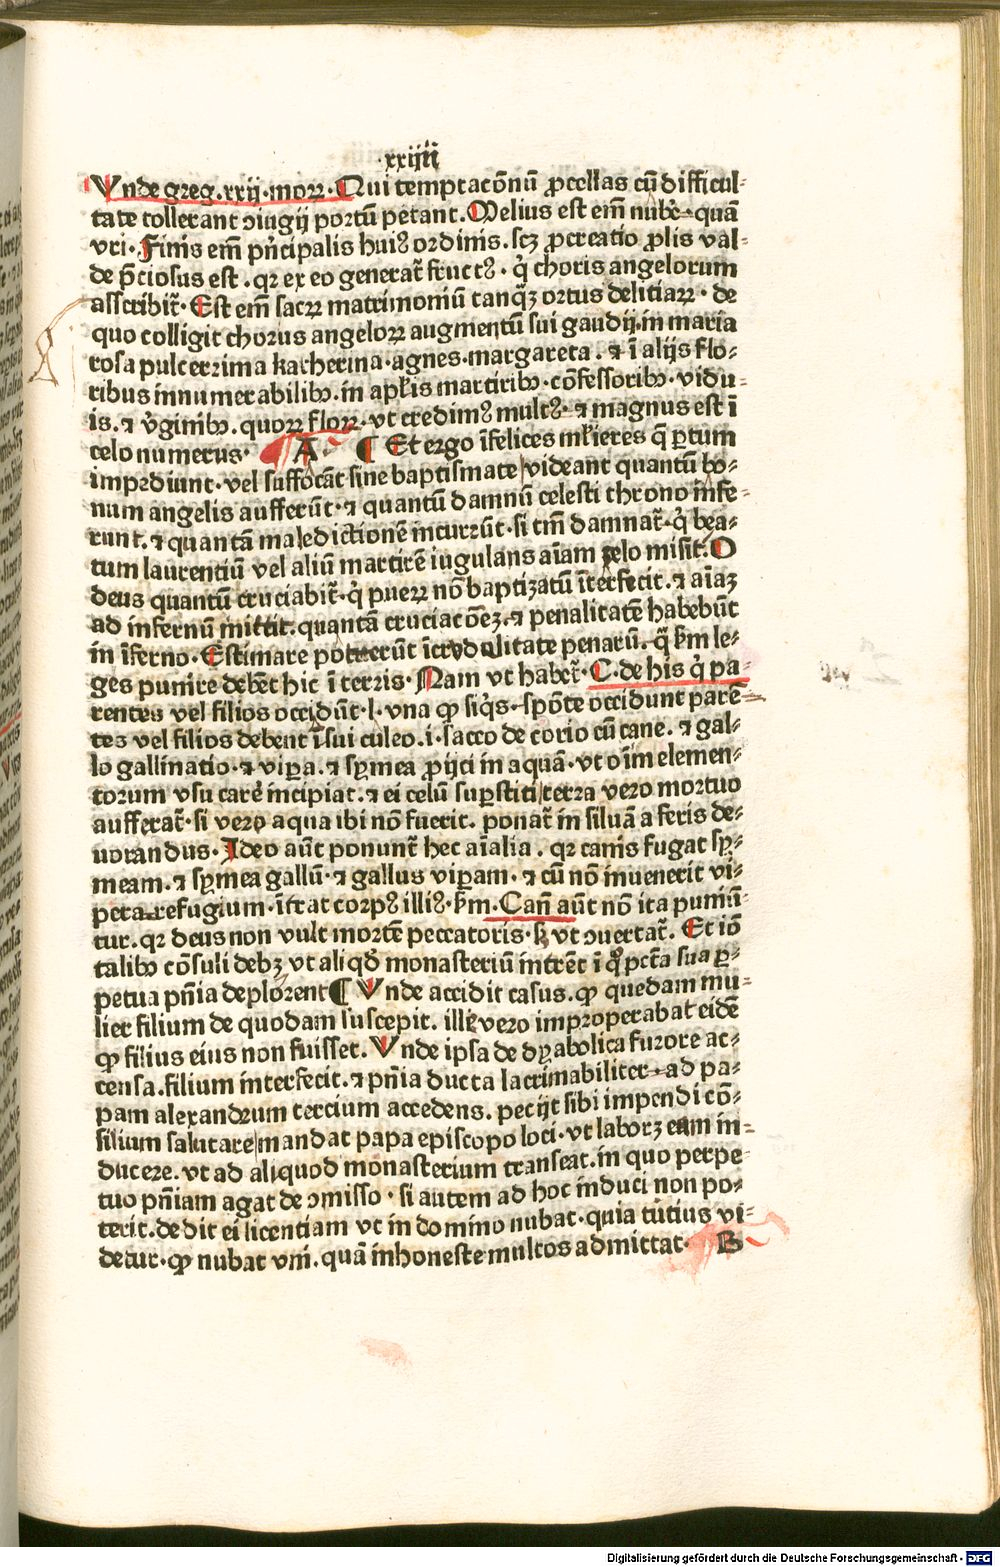 ·xxiiii
Vnde greg.xxij.moꝝ. Qui temptacōnū ꝓcellas cū difficul⸗
tate tollerant ↄiugij portū petant. Melius est em̄ nubeꝛe quā
vri. Finis em̄ pͥncipalis huiꝰ ordinis. scꝫ ꝓcreatio ꝓlis val⸗
de p̄ciosus est. qꝛ ex eo generat᷑ fructꝰ. qͥ choris angelorum
asscribit᷑. Est em̄ sacꝝ matrimoniū tanqꝫ ortus delitiaꝝ. de
quo colligit chorus angeloꝝ augmentū sui gaudij.in maria
rosa pulcerrima katherina.agnes.margareta. ⁊ ī alijs flo⸗
ribus innumerabilibꝯ.in apl̄is martiribꝯ.cōfessoribꝯ.vidu⸗
is.⁊ v̓ginibꝯ.quoꝝ floꝝ. vt credimꝰ multꝰ ⁊ magnus est ī
celo numerus. A ¶ Et ergo īfelices ml̓ieres q̄ ꝑtum
impediunt.vel suffocāt sine baptismate videant quantū bo⸗
num angelis aufferūt.⁊ quantū damnū celesti throno īnfe⸗
runt.⁊ quantā maledictionē incurrūt.si tm̄ damnat᷑.qͥ bea⸗
tum laurentiū vel aliū martirē iugulans aīam celo misit. O
deus quantū cruciabit᷑.qͥ pueꝝ nō baptizatū īterfecit.⁊ aīaꝫ
ad infernū mittit.quantā cruciacōeꝫ.⁊ penalitatē habebūt
in īferno. Estimare poterūt īcredulitate penarū. q̄ ẜm le⸗
ges punire debēt hic ī terris. Nam vt habet᷑. C. de his qͥ pa⸗
rentes vel filios occidūt.l.vna ꝙ siqͥs. spōte occidunt parē⸗
tes vel filios debent īsui culeo.i.sacco de corio cū cane.⁊ gal⸗
lo gallinatio.⁊ viꝑa.⁊ symea ꝓijci in aquā.vt oīm elemen⸗
torum vsu carē incipiat.⁊ ei celū suꝑstiti terra vero mortuo
aufferat᷑. si vero aqua ibi nō fuerit. ponat᷑ in siluā a feris de⸗
uorandus. Ideo aūt ponunt᷑ hec aīalia. qꝛ canis fugat sy⸗
meam.⁊ symea gallū.⁊ gallus viꝑam.⁊ cū nō inuenerit vi⸗
pera refugium.ītrat corpꝰ illiꝰ.ẜm. Can̄ aūt nō ita puniū⸗
tur.qꝛ deus non vult mortē peccatoris.sꝫ vt ↄuertat᷑. Et iō
talibꝯ cōsuli debꝫ vt aliqđ monasteriū intrēt ī qͦ pctā sua ꝑ⸗
petua pn̄ia deplorent ¶ Vnde accidit casus.ꝙ quedam mu⸗
lier filium de quodam suscepit. ille vero improperabat eidē
ꝙ filius eius non fuisset. Vnde ipsa de dyabolica furore ac⸗
censa.filium interfecit.⁊ pn̄ia ducta lacrimabiliter ad pa⸗
pam alexandrum tercium accedens. pecijt sibi impendi cō⸗
silium salutare mandat papa episcopo loci.vt laborꝫ eam in⸗
ducere.vt ad aliquod monasterium transeat.in quo perpe⸗
tuo pn̄iam agat de ↄmisso. si autem ad hoc induci non po⸗
terit.dedit ei licentiam vt in domino nubat.quia tutius vi⸗
detur.ꝙ nubat vni.quā inhoneste multos admittat. B
Digitalisierung gefördert durch die Deutsche Forschungsgemeinschaft - DFG